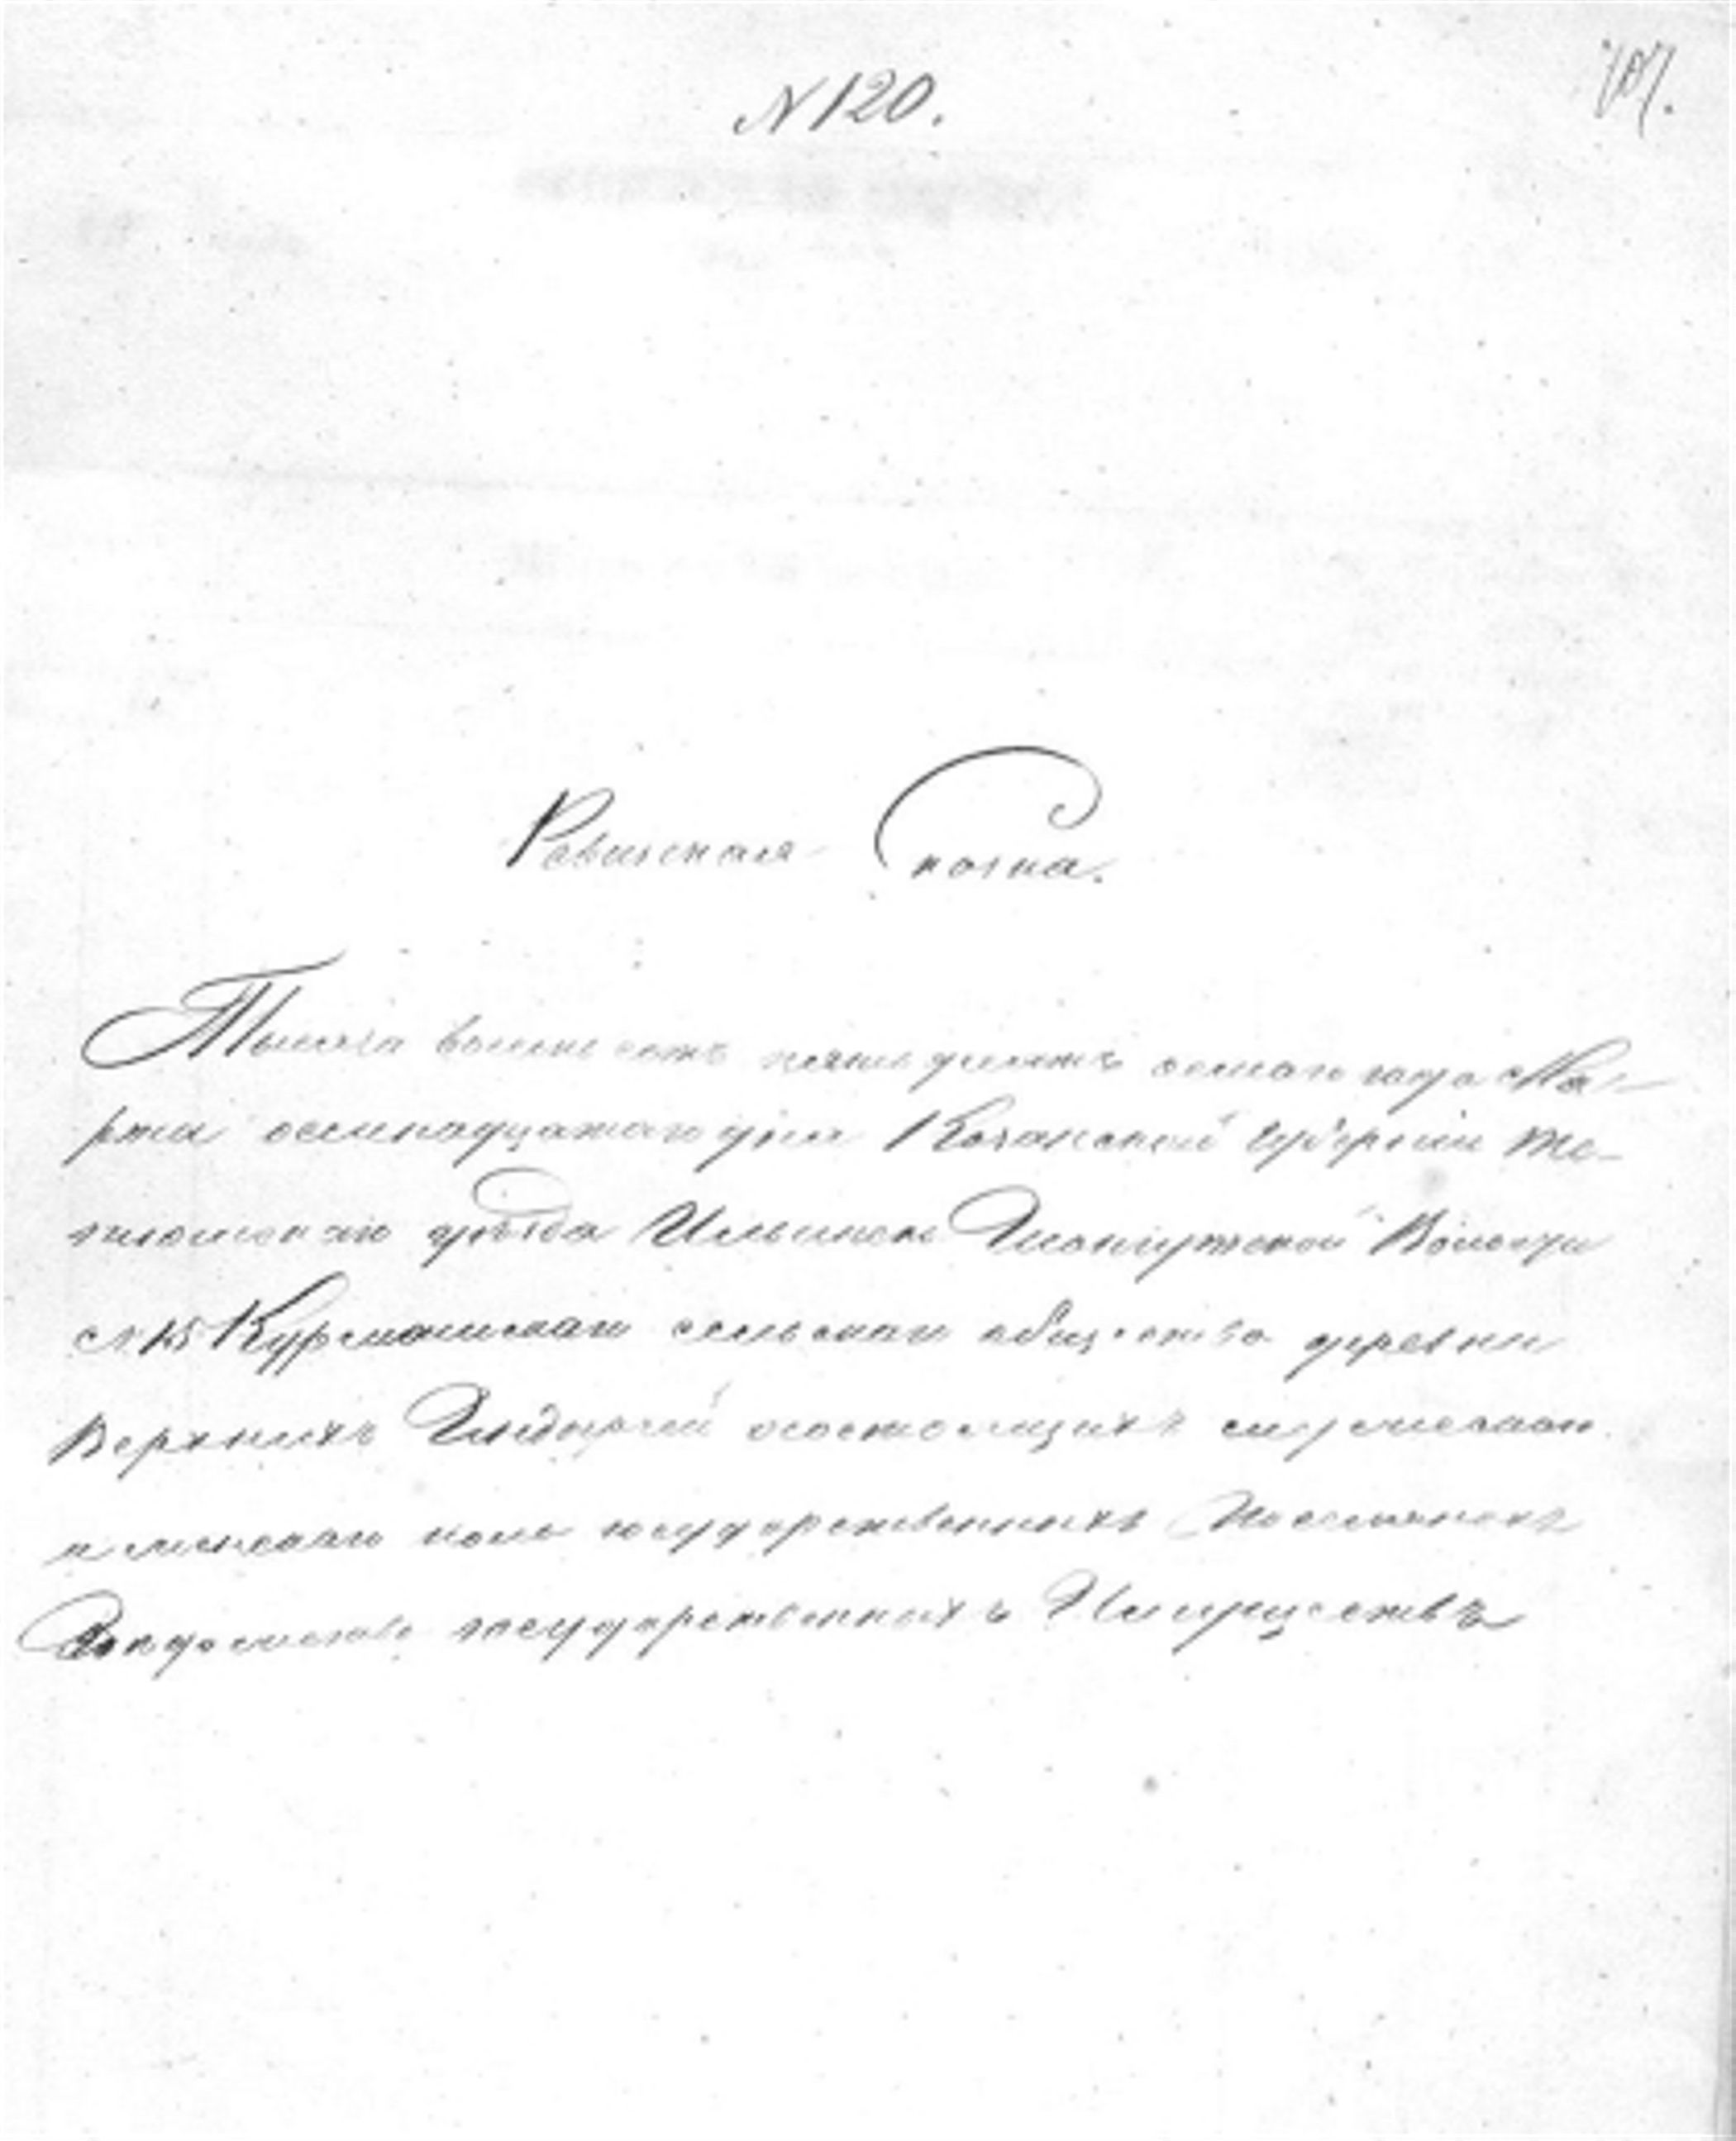 N 120.
107.
Ревизская Сказка.
Тысяча восемь сотъ пятьдесятъ осьмаго года Ма-
рта осемнадцатаго дня Казанской Губерніи Те-
тюшскаго уѣзда Ильинско Волости
Курмашскаго сельскаго общества деревни
Верхнихъ о состоящихъ мужескаго
и женскаго пола государственныхъ Поселянахъ
Вѣдомства государственныхъ Имуществъ